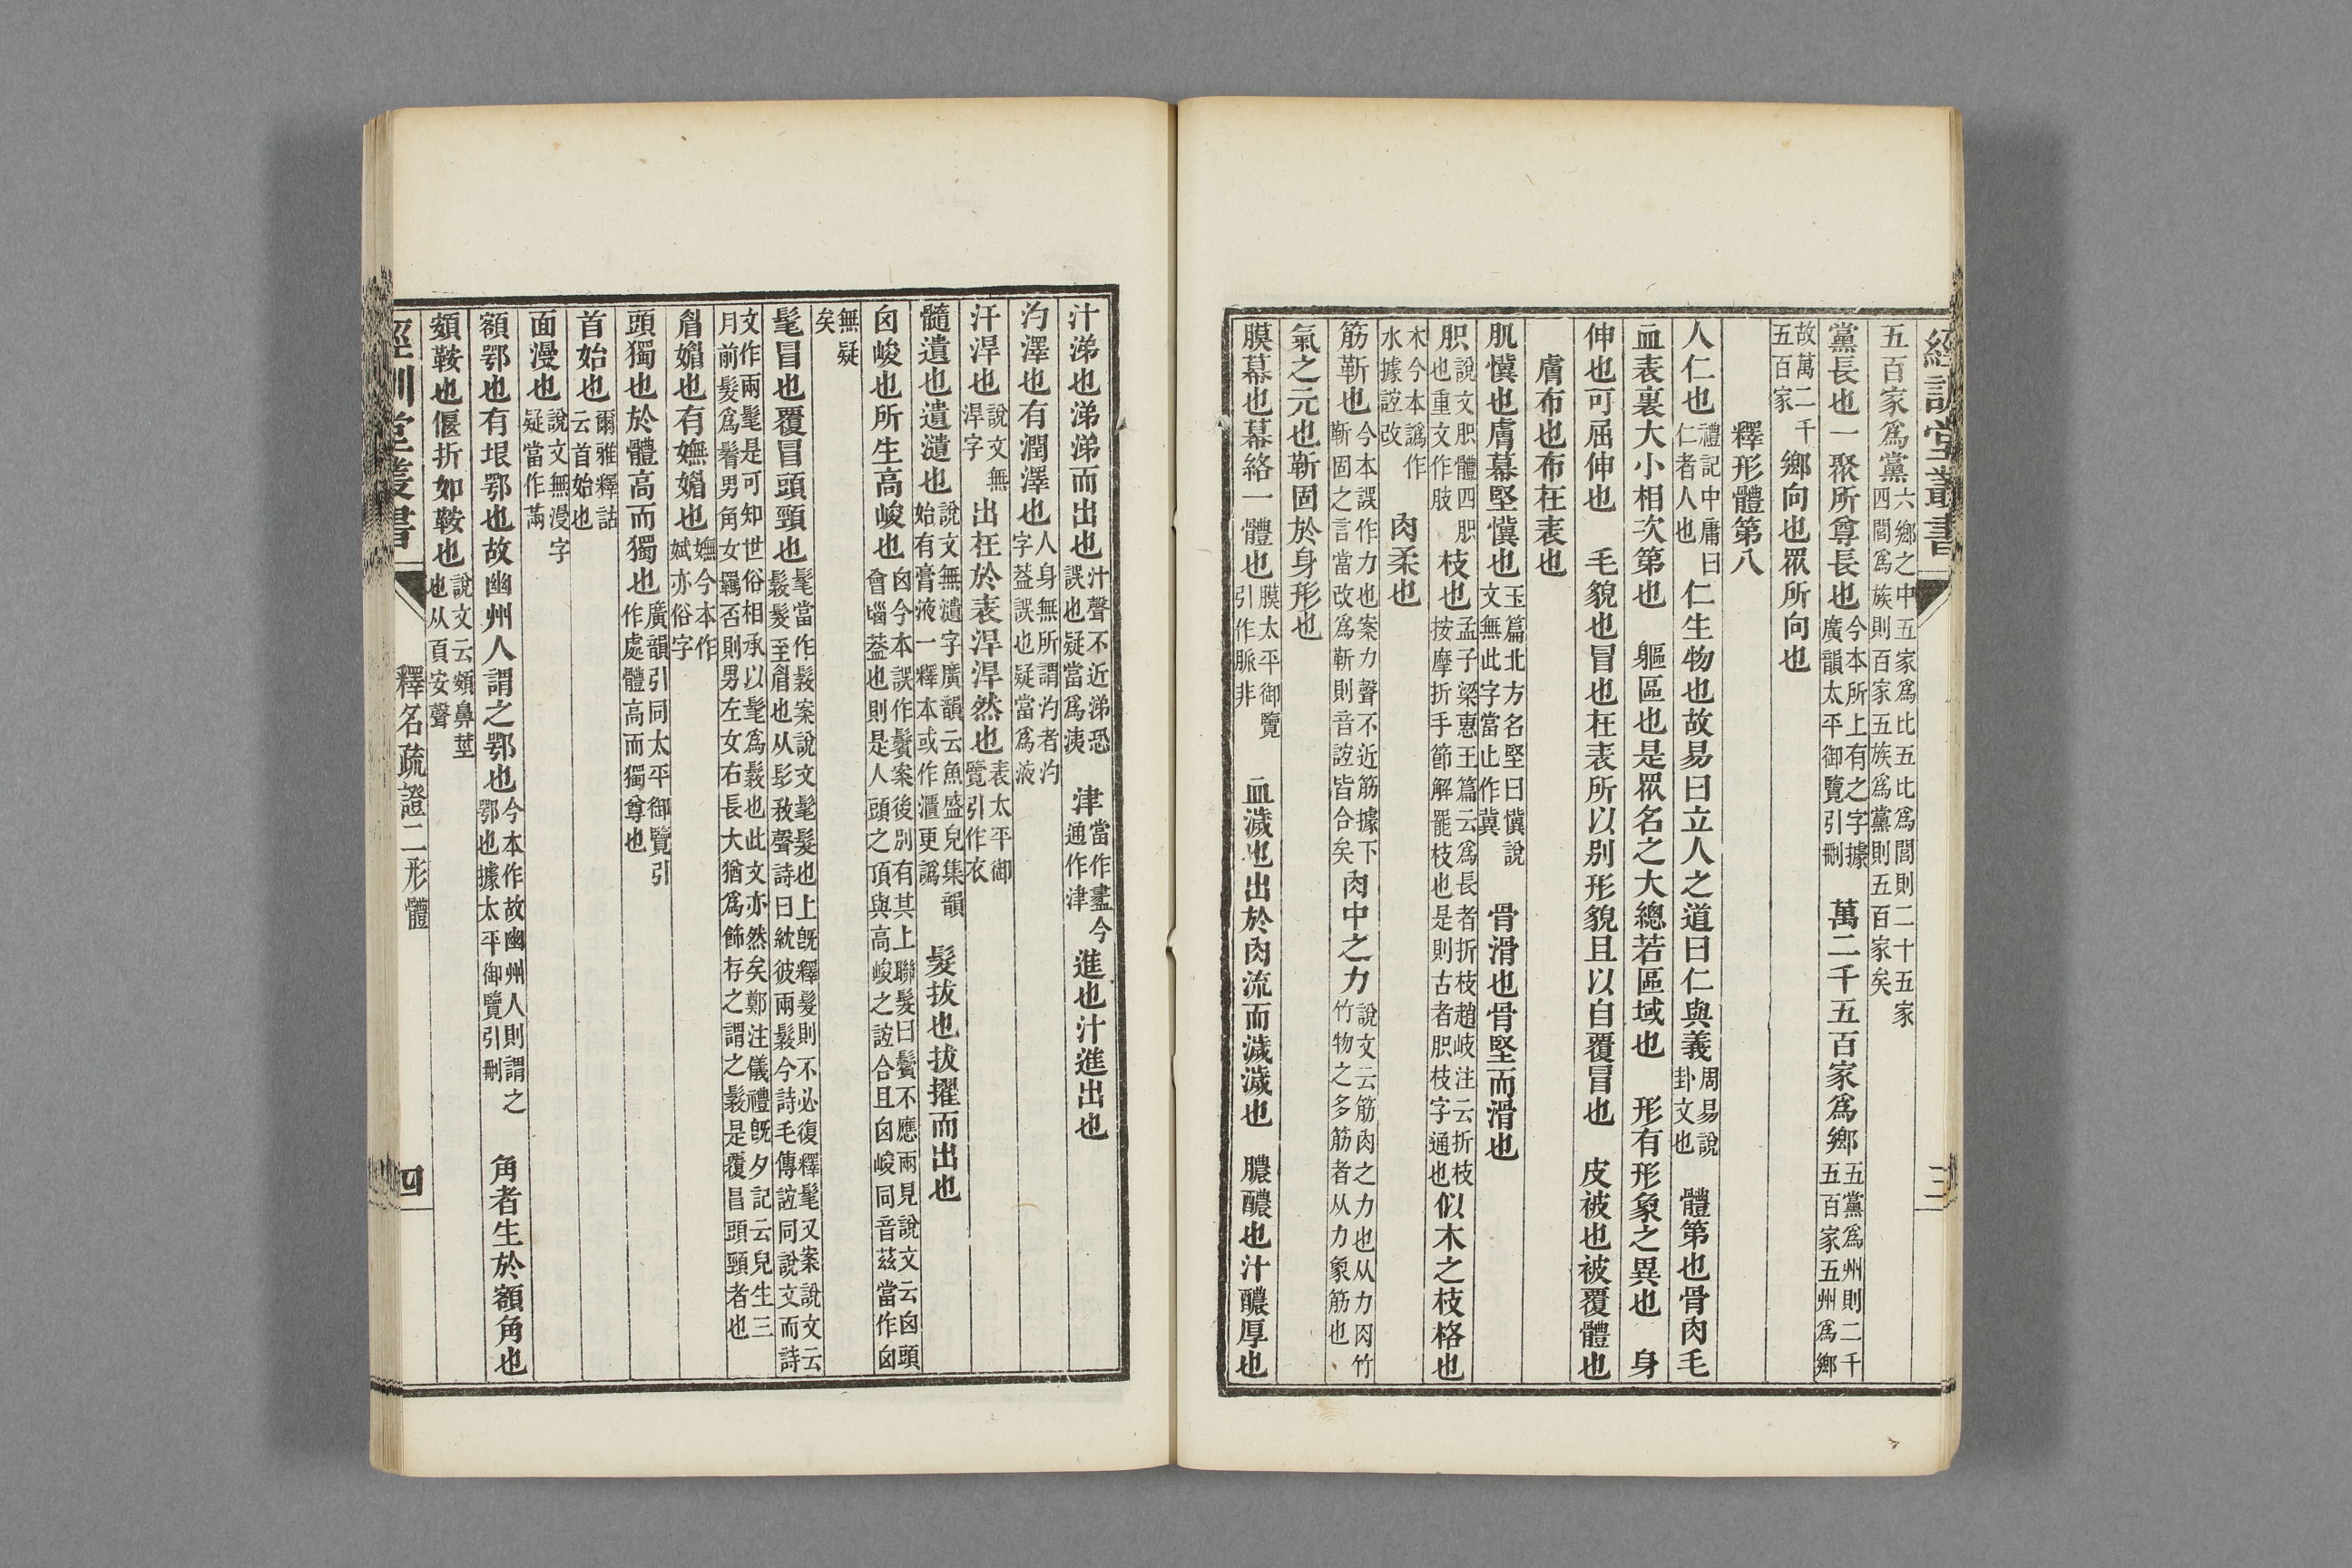 經訓堂叢書 三
五百家爲黨六鄉之中五家爲比五比爲閭則二十五家四閭爲族則百家五族爲黨則五百家矣
黨長也一聚所尊長也今本所上有之字據廣韻太平御覽引刪 萬二千五百家爲鄉五黨爲州則二千五百家五州爲鄉
故萬二千五百家 鄉向也眾所向也
釋形體第八
人仁也禮記中庸曰仁者人也仁生物也故易曰立人之道曰仁與義周易說卦文也 體第也骨肉毛
血表裏大小相次第也 軀區也是眾名之大總若區域也 形有形象之異也 身
伸也可屈伸也 毛貌也冒也在表所以別形貌且以自覆冒也 皮被也被覆體也
膚布也布在表也
肌懻也膚幕堅懻也玉篇北方名堅曰懻說文無此字當止作冀 骨滑也骨堅而滑也
胑說文胑體四胑也重文作肢枝也孟子梁惠王篇云爲長者折枝趙岐注云折枝按摩折手節解罷枝也是則古者胑枝字通也似木之枝格也
木今本譌作水據誼改 肉柔也
筋靳也今本誤作力也案力聲不近筋據下靳固之言當改爲靳則音誼皆合矣肉中之力說文云筋肉之力也从力肉竹竹物之多筋者从力象筋也
氣之元也靳固於身形也
膜幕也幕絡一體也膜太平御覽引作脈非 血濊也出於肉流而濊濊也 膿醲也汁醲厚也
汁涕也涕涕而出也汁聲不近涕恐誤也疑當爲洟 津當作𦘔今通作津進也汁進出也
汋澤也有潤澤也人身無所謂汋者汋字葢誤也疑當爲液
汗涆也說文無涆字出在於表涆涆然也表太平御覽引作衣
髓遺也遺瀢也說文無瀢字廣韻云魚盛皃集韻始有膏液一釋本或作㵋更譌 髮拔也拔擢而出也
囟峻也所生高峻也囟今本誤作鬢案後別有其上聯髮曰鬢不應兩見說文云囟頭會𡿺葢也則是人頭之頂與高峻之誼合且囟峻同音茲當作囟
無疑矣
髦冒也覆冒頭頸也髦當作髳案說文髦髮也上旣釋髮則不必復釋髦又案說文云髳髮至眉也从髟敄聲詩曰紞彼兩髳今詩毛傳誼同說文而詩
文作兩髦是可知世俗相承以髦爲髳也此文亦然矣鄭注儀禮旣夕記云兒生三月前髮爲鬌男角女羈否則男左女右長大猶爲飾存之謂之髳是覆冒頭頸者也
眉媚也有嫵媚也嫵今本作娬亦俗字
頭獨也於體高而獨也廣韻引同太平御覽引作處體高而獨尊也
首始也爾雅釋詁云首始也
面漫也說文無漫字疑當作滿
額鄂也有垠鄂也故幽州人謂之鄂也今本作故幽州人則謂之鄂也據太平御覽引刪 角者生於額角也
頞鞍也偃折如鞍也說文云頞鼻莖也从頁安聲
經訓堂叢書 釋名疏證二 形體 四